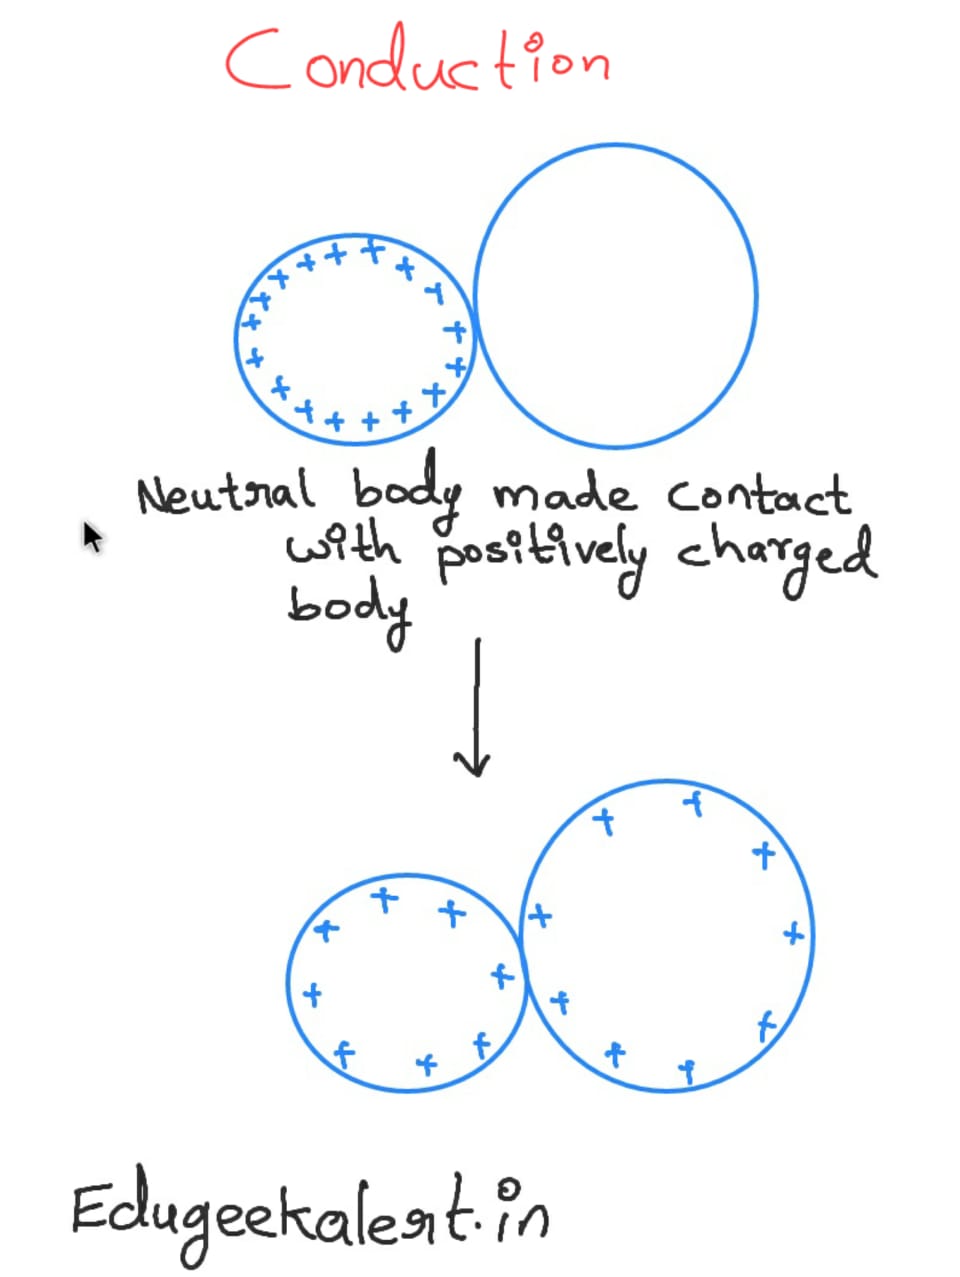 Conduction
Neutral body made contact
with positively charged
body
Edugeekalert.in